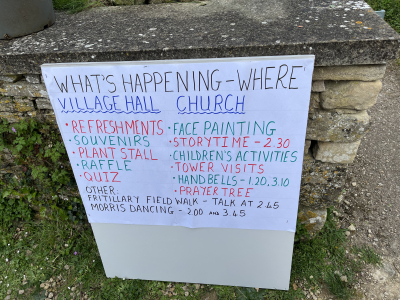 WHAT'S HAPPENING - WHERE
VILLAGE HALL CHURCH
• REFRESHMENTS • FACE PAINTING
• SOUVENIRS • STORYTIME - 2.30
• PLANT STALL • CHILDREN'S ACTIVITIES
• RAFFLE • TOWER VISITS
• QUIZ • HANDBELLS - 1.20, 3.10
OTHER: • PRAYER TREE
FRITILLARY FIELD WALK - TALK AT 2.45
MORRIS DANCING - 2.00 AND 3.45